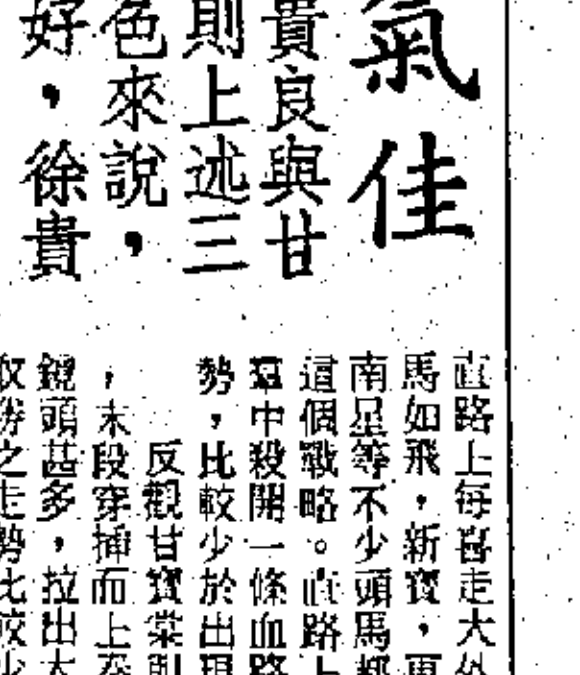 氣佳
貴良與甘
則上述三
色來說，
好，徐貴
直路上每喜走大外
馬如飛，新寶，更
南星等不少頭馬都
這個戰略。直路上
羣中殺開一條血路
勢，比較少於出現
反觀甘寶棠則
，末段穿插而上奔
鏡頭甚多，拉出大
收勝之走勢比較少